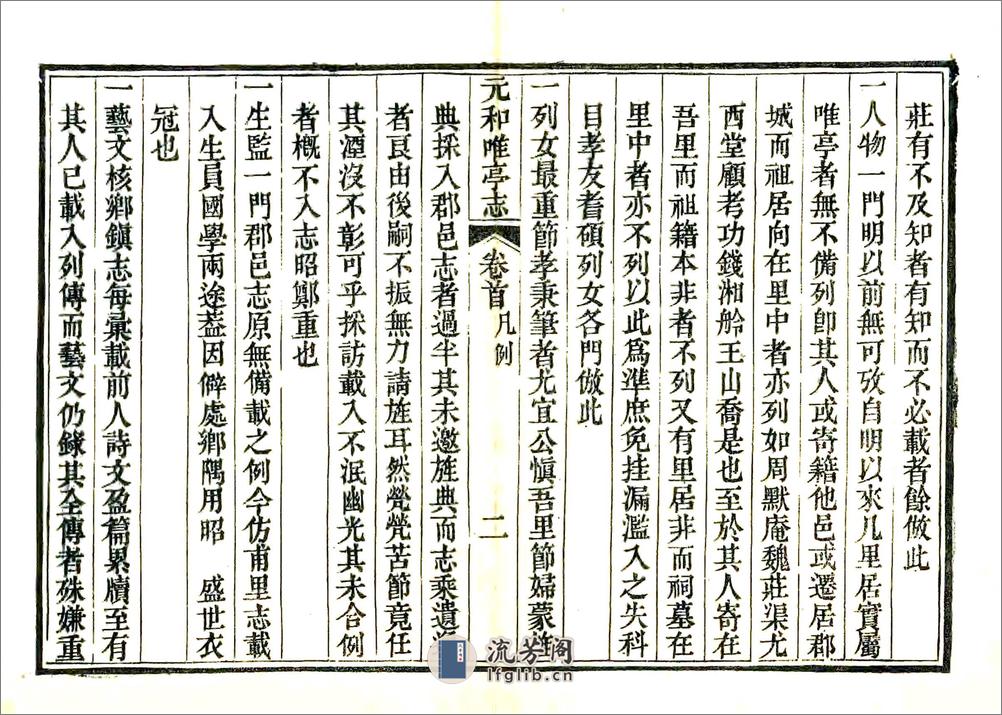 莊有不及知者有知而不必載者餘倣此
一人物一門明以前無可攷自明以來凡里居實屬
唯亭者無不備列卽其人或寄籍他邑或遷居郡
城而祖居向在里中者亦列如周默庵魏莊渠尤
西堂顧考功錢湘舲王山喬是也至於其人寄在
吾里而祖籍本非者不列又有里居非而祠墓在
里中者亦不列以此爲準庶免挂漏濫入之失科
目孝友耆碩列女各門倣此
一列女最重節孝秉筆者尤宜公愼吾里節婦蒙旌
元和唯亭志 卷首 凡例 二
典採入郡邑志者過半其未邀旌典而志乘遺
者良由後嗣不振無力請旌耳然煢煢苦節竟任
其湮沒不彰可乎採訪載入不泯幽光其未合例
者槪不入志昭鄭重也
一生監一門郡邑志原無備載之例今仿甫里志載
入生員國學兩途葢因僻處鄉隅用昭 盛世衣
冠也
一藝文核鄉鎮志每彙載前人詩文盈篇累牘至有
其人已載入列傳而藝文仍錄其全傳者殊嫌重
流芳阁
lfglib.cn